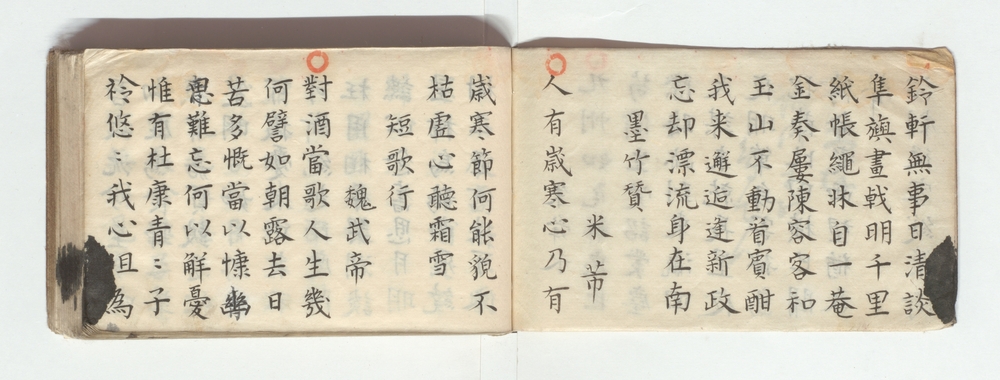 鈴軒無事日清談
隼旟畫戟明千里
紙帳繩牀自菴
金奏屢陳容客和
玉山不動看賓酣
我来邂逅逢新政
忘却漂流身在南
墨竹賛
米芾
人有歳寒心乃有
歳寒節何能貌不
枯虛心聽霜雪
短歌行
魏武帝
對酒當歌人生幾
何譬如朝露去日
苦多慨當以慷幽
思難忘何以解憂
惟有杜康青〻子
衿悠〻我心但為